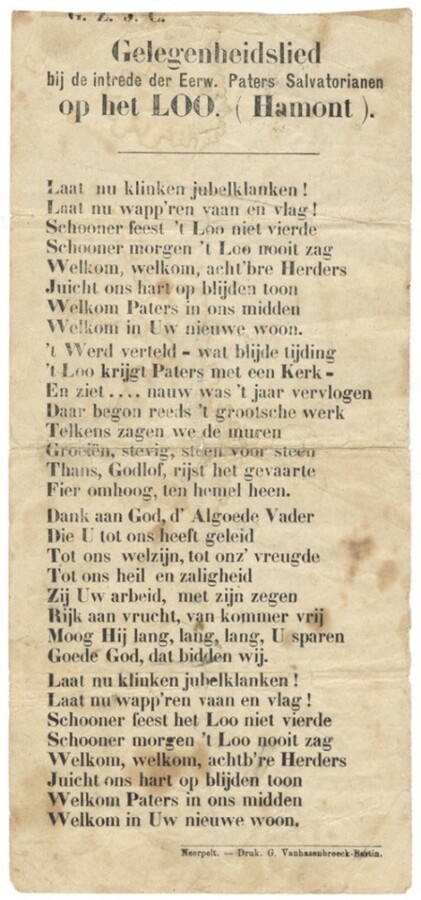 G. Z. J. C.
Gelegenheidslied
bij de intrede der Eerw. Paters Salvatorianen
op het LOO. ( Hamont ).
Laat nu klinken jubelklanken !
Laat nu wapp'ren vaan en vlag !
Schooner feest 't Loo niet vierde
Schooner morgen 't Loo nooit zag
Welkom, welkom, acht'bre Herders
Juicht ons hart op blijden toon
Welkom Paters in ons midden
Welkom in Uw nieuwe woon.
't Werd verteld - wat blijde tijding
't Loo krijgt Paters met een Kerk -
En ziet .... nauw was 't jaar vervlogen
Daar begon reeds 't grootsche werk
Telkens zagen we de muren
Groeiën, stevig, steen voor steen
Thans, Godlof, rijst het gevaarte
Fier omhoog, ten hemel heen.
Dank aan God, d' Algoede Vader
Die U tot ons heeft geleid
Tot ons welzijn, tot onz' vreugde
Tot ons heil en zaligheid
Zij Uw arbeid, met zijn zegen
Rijk aan vrucht, van kommer vrij
Moog Hij lang, lang, lang, U sparen
Goede God, dat bidden wij.
Laat nu klinken jubelklanken !
Laat nu wapp'ren vaan en vlag !
Schooner feest het Loo niet vierde
Schooner morgen 't Loo nooit zag
Welkom, welkom, achtb're Herders
Juicht ons hart op blijden toon
Welkom Paters in ons midden
Welkom in Uw nieuwe woon.
Neerpelt. — Druk. G. Vanhasenbroeck-Bastin.